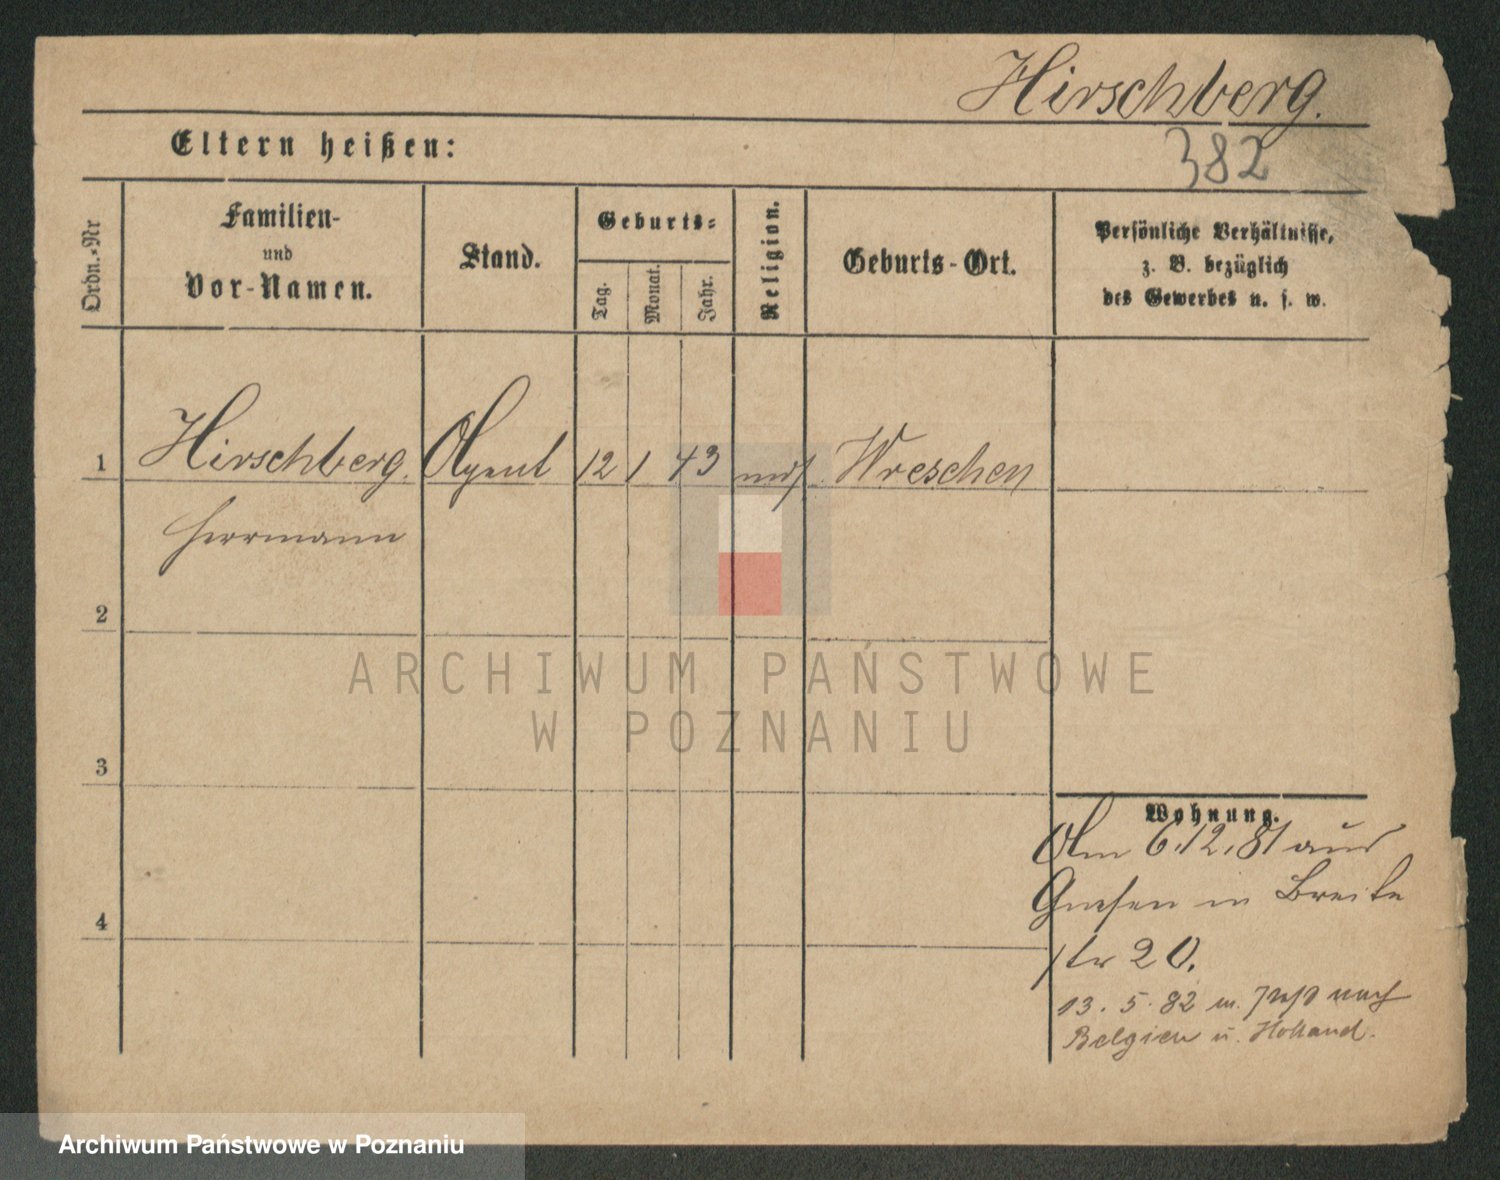 Hirschberg.
382
Eltern heißen:
Ordn.-Nr
Familien-
und
Vor-Namen.
Stand.
Geburts-
Tag.
Monat.
Jahr.
Religion.
Geburts-Ort.
Persönliche Verhältnisse,
z. B. bezüglich
des Gewerbes u. s. w.
1 Hirschberg. Agent 12 1 43 mos Wreschen
Herrmann
2
3
4
Wohnung.
Am 6.12.81 aus
Gnesen in Breite
str 20.
13. 5. 82 m. Paß nach
Belgien u. Holland.
ARCHIWUM PAŃSTWOWE
W POZNANIU
Archiwum Państwowe w Poznaniu